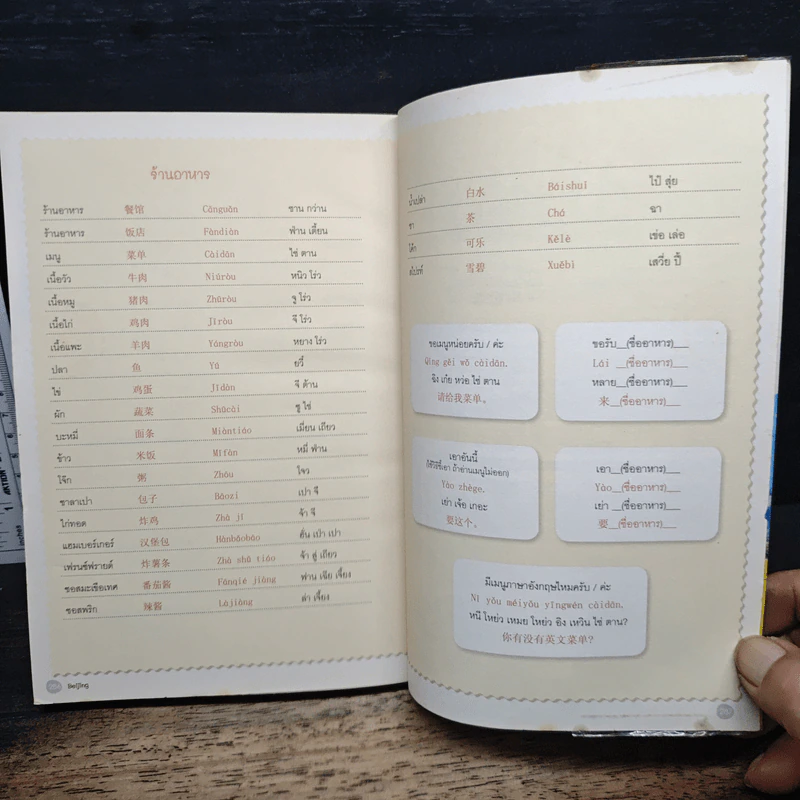 ร้านอาหาร
ร้านอาหาร 餐馆 Cānguǎn ชาน กว่าน
ร้านอาหาร 饭店 Fàndiàn ฟ่าน เตี้ยน
เมนู 菜单 Càidān ไช่ ตาน
เนื้อวัว 牛肉 Niúròu หนิว โร่ว
เนื้อหมู 猪肉 Zhūròu จู โร่ว
เนื้อไก่ 鸡肉 Jīròu จี โร่ว
เนื้อแพะ 羊肉 Yángròu หยาง โร่ว
ปลา 鱼 Yú ยวี๋
ไข่ 鸡蛋 Jīdàn จี ด้าน
ผัก 蔬菜 Shūcài ชู ไช่
บะหมี่ 面条 Miàntiáo เมี่ยน เถียว
ข้าว 米饭 Mǐfàn หมี่ ฟ่าน
โจ๊ก 粥 Zhōu โจว
ซาลาเปา 包子 Bāozi เปา จึ
ไก่ทอด 炸鸡 Zhá jī จ๋า จี
แฮมเบอร์เกอร์ 汉堡包 Hànbǎobāo ฮั่น เป่า เปา
เฟรนช์ฟรายด์ 炸薯条 Zhà shǔ tiáo จ้า สู่ เถียว
ซอสมะเขือเทศ 番茄酱 Fānqié jiàng ฟาน เฉีย เจี้ยง
ซอสพริก 辣酱 Làjiàng ล่า เจี้ยง
Beijing
น้ำเปล่า 白水 Báishuǐ ไป๋ สุ่ย
ชา 茶 Chá ฉา
โค้ก 可乐 Kělè เข่อ เล่อ
สไปรท์ 雪碧 Xuěbì เสวี่ย ปี้
ขอเมนูหน่อยครับ / ค่ะ
Qǐng gěi wǒ càidān.
ฉิง เก๋ย หว่อ ไช่ ตาน
请给我菜单。
ขอรับ__(ชื่ออาหาร)__
Lái __(ชื่ออาหาร)__
หลาย__(ชื่ออาหาร)__
来__(ชื่ออาหาร)__
เอาอันนี้
(ใช้วิธีชี้เอา ถ้าอ่านเมนูไม่ออก)
Yào zhège.
เย่า เจ้อ เกอะ
要这个。
เอา__(ชื่ออาหาร)__
Yào__(ชื่ออาหาร)__
เย่า __(ชื่ออาหาร)__
要__(ชื่ออาหาร)__
มีเมนูภาษาอังกฤษไหมครับ / ค่ะ
Nǐ yǒu méiyǒu yīngwén càidān.
หนี โหย่ว เหมย โหย่ว อิง เหวิน ไช่ ตาน?
你有没有英文菜单?